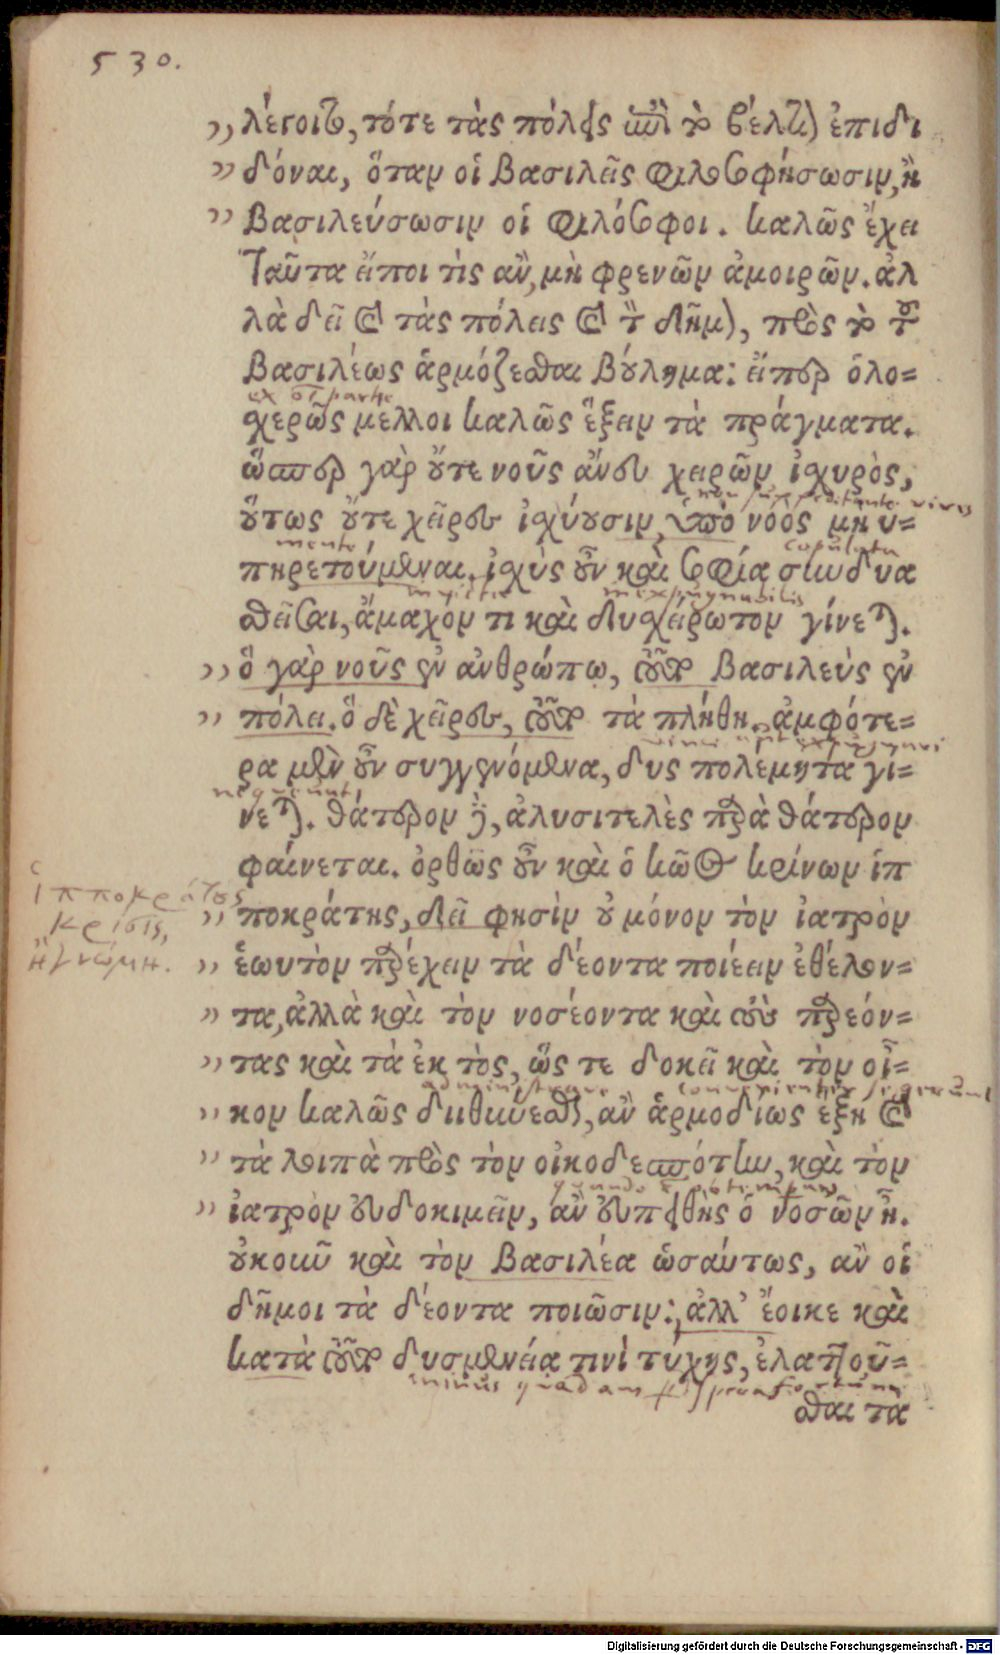 530.
„ λέγοιτο, τότε τὰς πόλεις ἐπὶ τὸ βέλτιον ἐπιδι
„ δόναι, ὅταν οἱ βασιλεῖς φιλοσοφήσωσιν, ἢ
„ βασιλεύσωσιν οἱ φιλόσοφοι. καλῶς ἔχει
ταῦτα εἴποι τὶς ἂν, μὴ φρενῶν ἀμοιρῶν. ἀλ
λὰ δεῖ καὶ τὰς πόλεις καὶ τὸν δῆμον, πρὸς τὸ τοῦ
βασιλέως ἁρμόζεσθαι βούλημα: εἴπερ ὁλο=
χερῶς μέλλοι καλῶς ἕξειν τὰ πράγματα.
ὥσπερ γὰρ οὔτε νοῦς ἄνευ χειρῶν ἰσχυρὸς,
οὕτως οὔτε χεῖρες ἰσχύουσιν, ὑπὸ νοὸς μὴ ὑ=
πηρετούμεναι. ἰσχὺς οὖν καὶ σοφία συνδυα
σθεῖσαι, ἄμαχόν τι καὶ δυσχείρωτον γίνεται.
„ ὃ γὰρ νοῦς ἐν ἀνθρώπῳ, τοῦτο βασιλεὺς ἐν
„ πόλει. ὃ δὲ χεῖρες, τοῦτο τὰ πλήθη. ἀμφότε=
ρα μὲν οὖν συγγενόμενα, δυς πολέμητα γί=
νεται. θάτερον δὲ, ἀλυσιτελὲς παρὰ θάτερον
φαίνεται. ὀρθῶς οὖν καὶ ὁ κῶος κρίνων ἱπ
„ ποκράτης, δεῖ φησὶν οὐ μόνον τὸν ἰατρὸν
„ ἑωυτὸν παρέχειν τὰ δέοντα ποιέειν ἐθέλον=
„ τα, ἀλλὰ καὶ τὸν νοσέοντα καὶ τοὺς παρεόν=
„ τας καὶ τὰ ἐκ τὸς, ὥς τε δοκεῖ καὶ τὸν οἶ=
„ κον καλῶς διιθύνεσθαι, ἂν ἁρμοδίως ἕξῃ καὶ
„ τὰ λοιπὰ πρὸς τὸν οἰκοδεσπότην, καὶ τὸν
„ ἰατρὸν εὐδοκιμεῖν, ἂν εὐπειθὴς ὁ νοσῶν ᾖ.
οὐκοῦν καὶ τὸν βασιλέα ὡσαύτως, ἂν οἱ
δῆμοι τὰ δέοντα ποιῶσιν: ἀλλ' ἔοικε καὶ
κατὰ τοῦτο δυσμενείᾳ τινὶ τύχης, ἐλαττοῦ=
σθαι τὰ
Ἱπποκράτους
κρίσις,
ἢ γνώμη.
ex oi parte
mente,
copulata
inexpugnabilis
nequeunt,
administrare
minus quadam
Digitalisierung gefördert durch die Deutsche Forschungsgemeinschaft - DFG